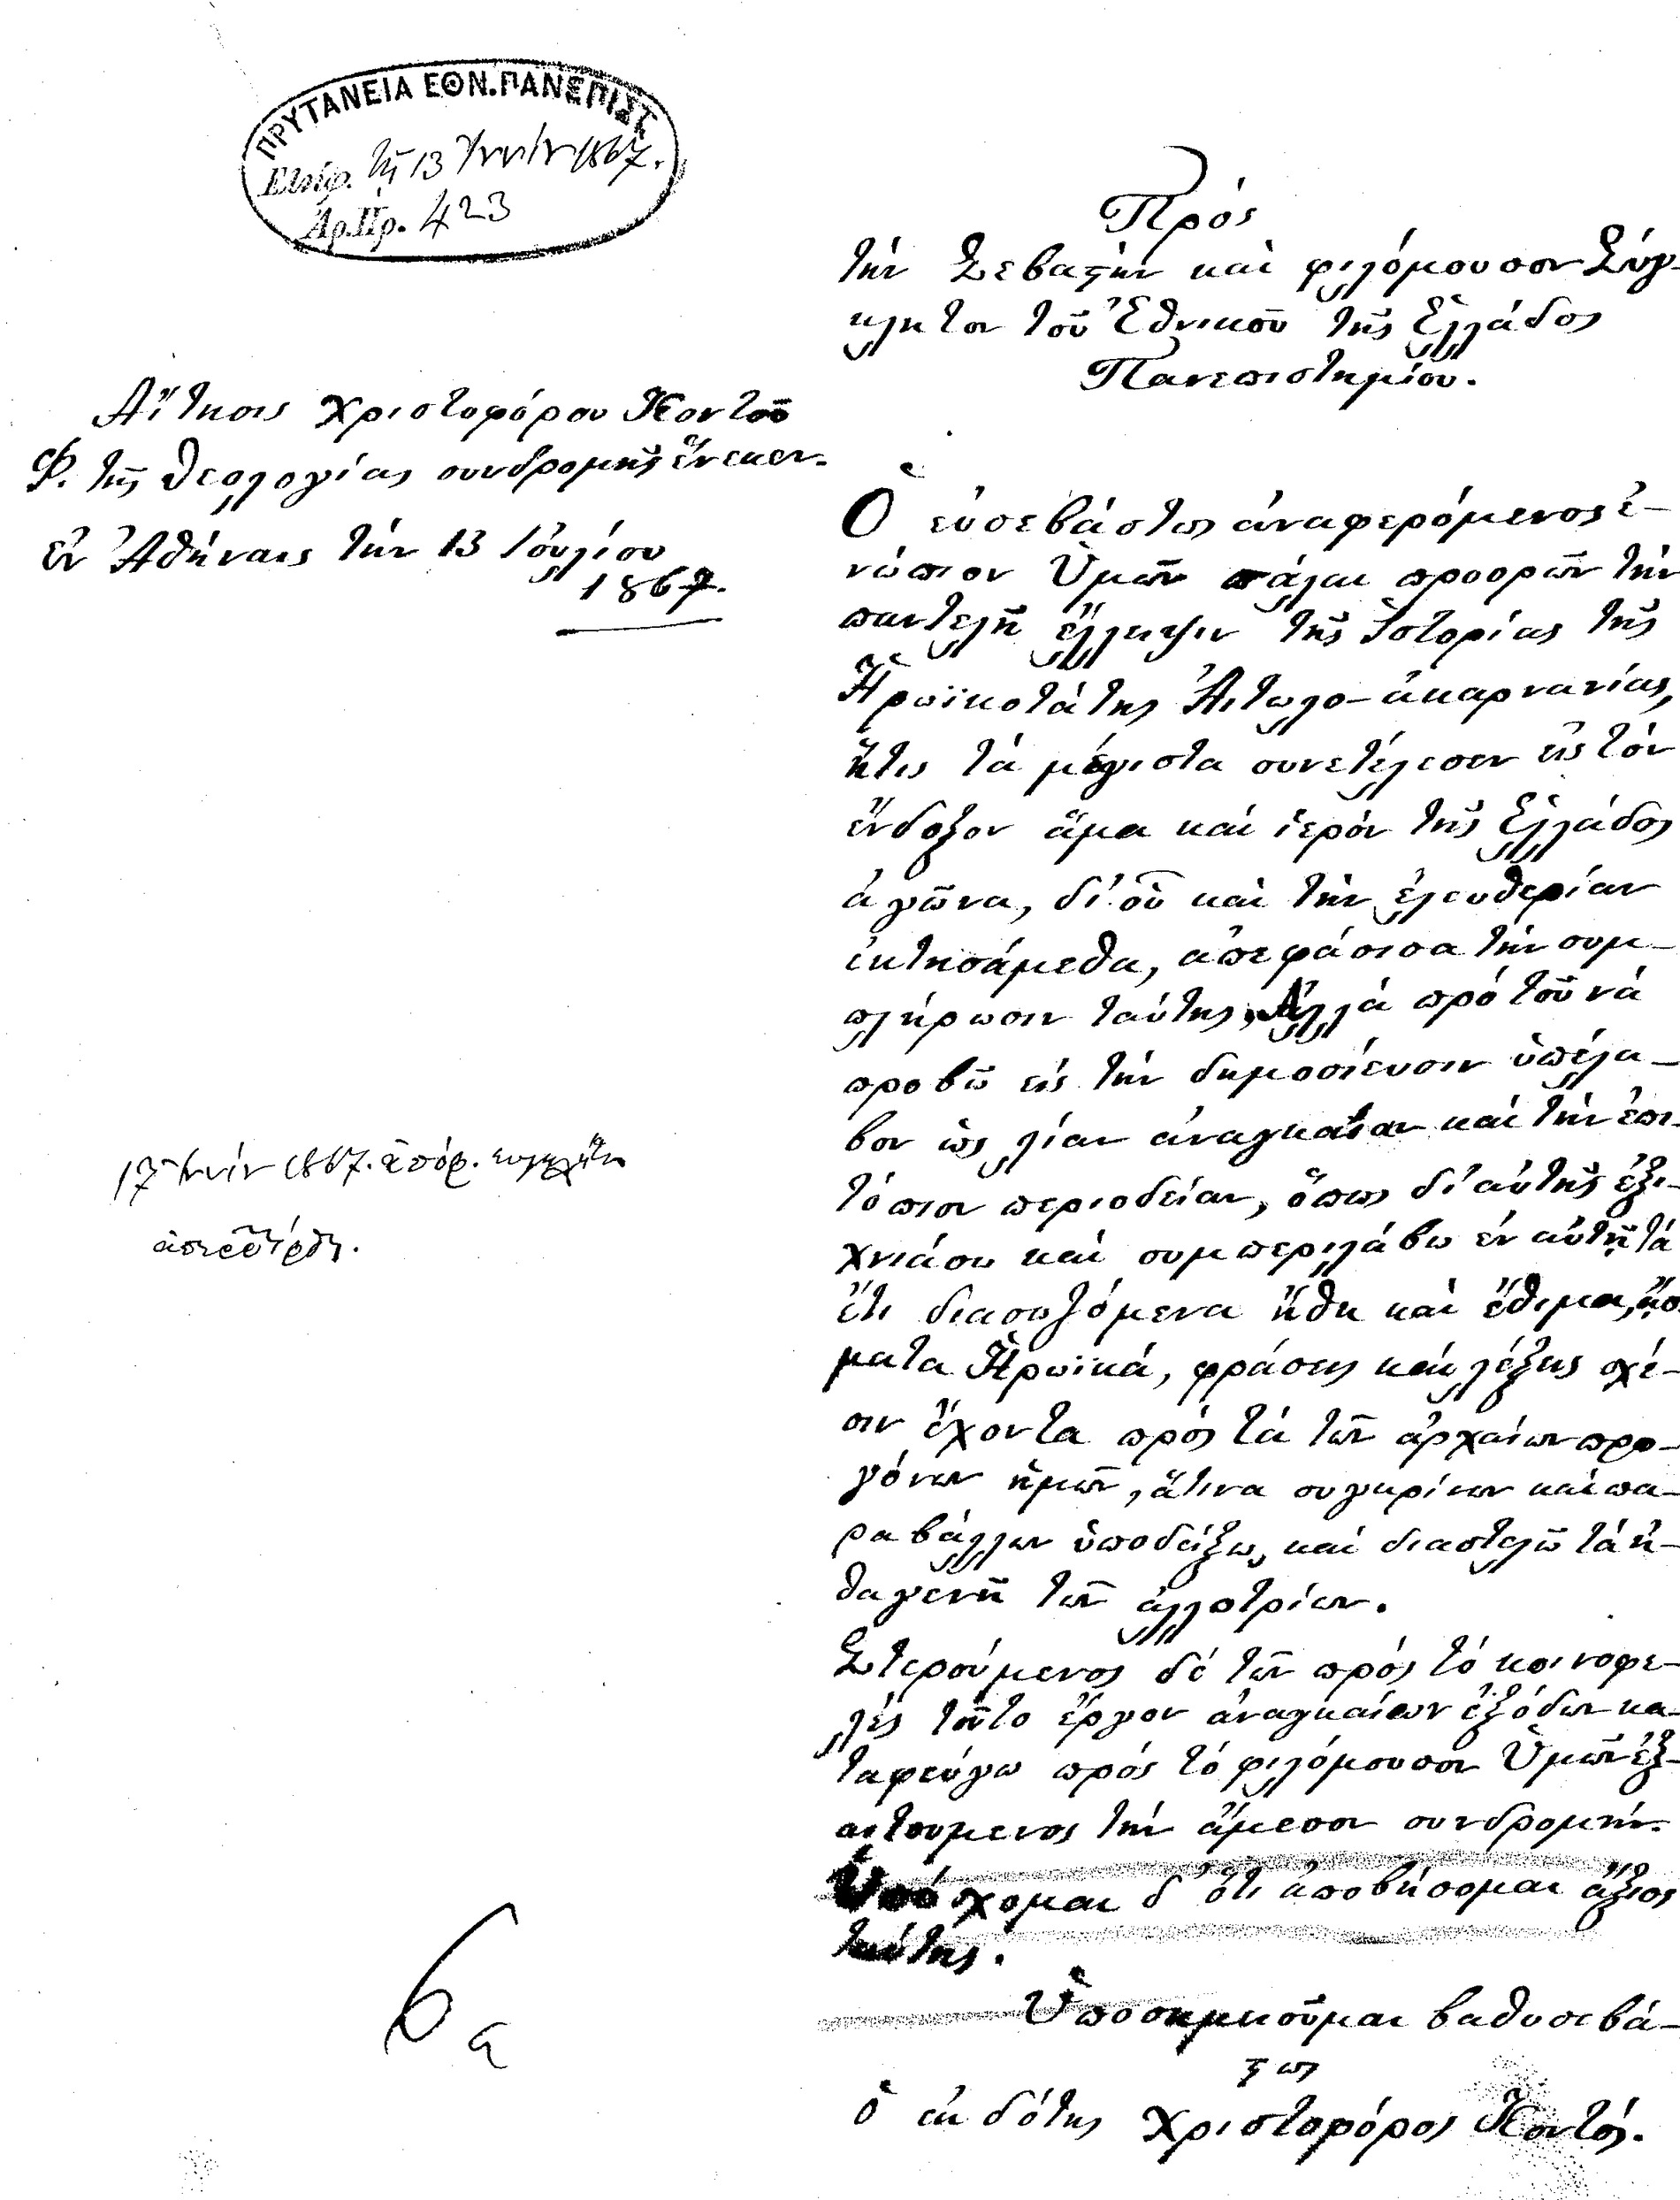 ΠΡΥΤΑΝΕΙΑ ΕΘΝ. ΠΑΝΕΠΙΣΤ.
Ελήφ. τῇ 13 1867.
Ἀρ. Πρ. 423
Αἴτησις Χριστοφόρου Κοντοῦ
Φ. τῆς Θεολογίας συνδρομῆς ἕνεκεν.
ἐν Ἀθήναις τὴν 13 Ἰουλίου
1867.
17 1867.
ἀπερρίφθη.
6α
Πρὸς
τὴν Σεβαστὴν καὶ φιλόμουσον Σύγ-
κλητον τοῦ Ἐθνικοῦ τῆς Ἑλλάδος
Πανεπιστημίου.
Ὁ εὐσεβάστως ἀναφερόμενος ἐ-
νώπιον Ὑμῶν πάλαι προορῶν τὴν
παντελῆ ἔλλειψιν τῆς Ἱστορίας τῆς
Ἡρωϊκοτάτης Αἰτωλο-ακαρνανίας,
ἥτις τὰ μέγιστα συνετέλεσεν εἰς τὸν
ἔνδοξον ἅμα καὶ ἱερὸν τῆς Ἑλλάδος
ἀγῶνα, δι' οὗ καὶ τὴν ἐλευθερίαν
ἐκτησάμεθα, ἀπεφάσισα τὴν συμ-
πλήρωσιν ταύτης, Ἀλλὰ πρὸ τοῦ νὰ
προβῶ εἰς τὴν δημοσίευσιν ὑπέλα-
βον ὡς λίαν ἀναγκαίαν καὶ τὴν ἐπι-
τόπιον περιοδείαν, ὅπως δι' αὐτῆς ἐξι-
χνιάσω καὶ συμπεριλάβω ἐν αὐτῇ τὰ
ἔτι διασωζόμενα ἤθη καὶ ἔθιμα, ᾄσ-
ματα Ἡρωϊκά, φράσεις καὶ λέξεις σχέ-
σιν ἔχοντα πρὸς τὰ τῶν ἀρχαίων προ-
γόνων ἡμῶν, ἅτινα συγκρίνων καὶ πα-
ραβάλλων ὑποδείξω, καὶ διαστελῶ τὰ ἰ-
θαγενῆ τῶν ἀλλοτρίων.
Στερούμενος δὲ τῶν πρὸς τὸ κοινοφε-
λὲς τοῦτο ἔργον ἀναγκαίων ἐξόδων κα-
ταφεύγω πρὸς τὸ φιλόμουσον Ὑμῶν ἐξ-
αιτούμενος τὴν ἄμεσον συνδρομήν.
Ὑπόσχομαι δ' ὅτι ἀποβήσομαι ἄξιος
ταύτης.
Ὑποσημειοῦμαι βαθυσεβά-
στως
ὁ ἐκδότης Χριστοφόρος Κοντός.